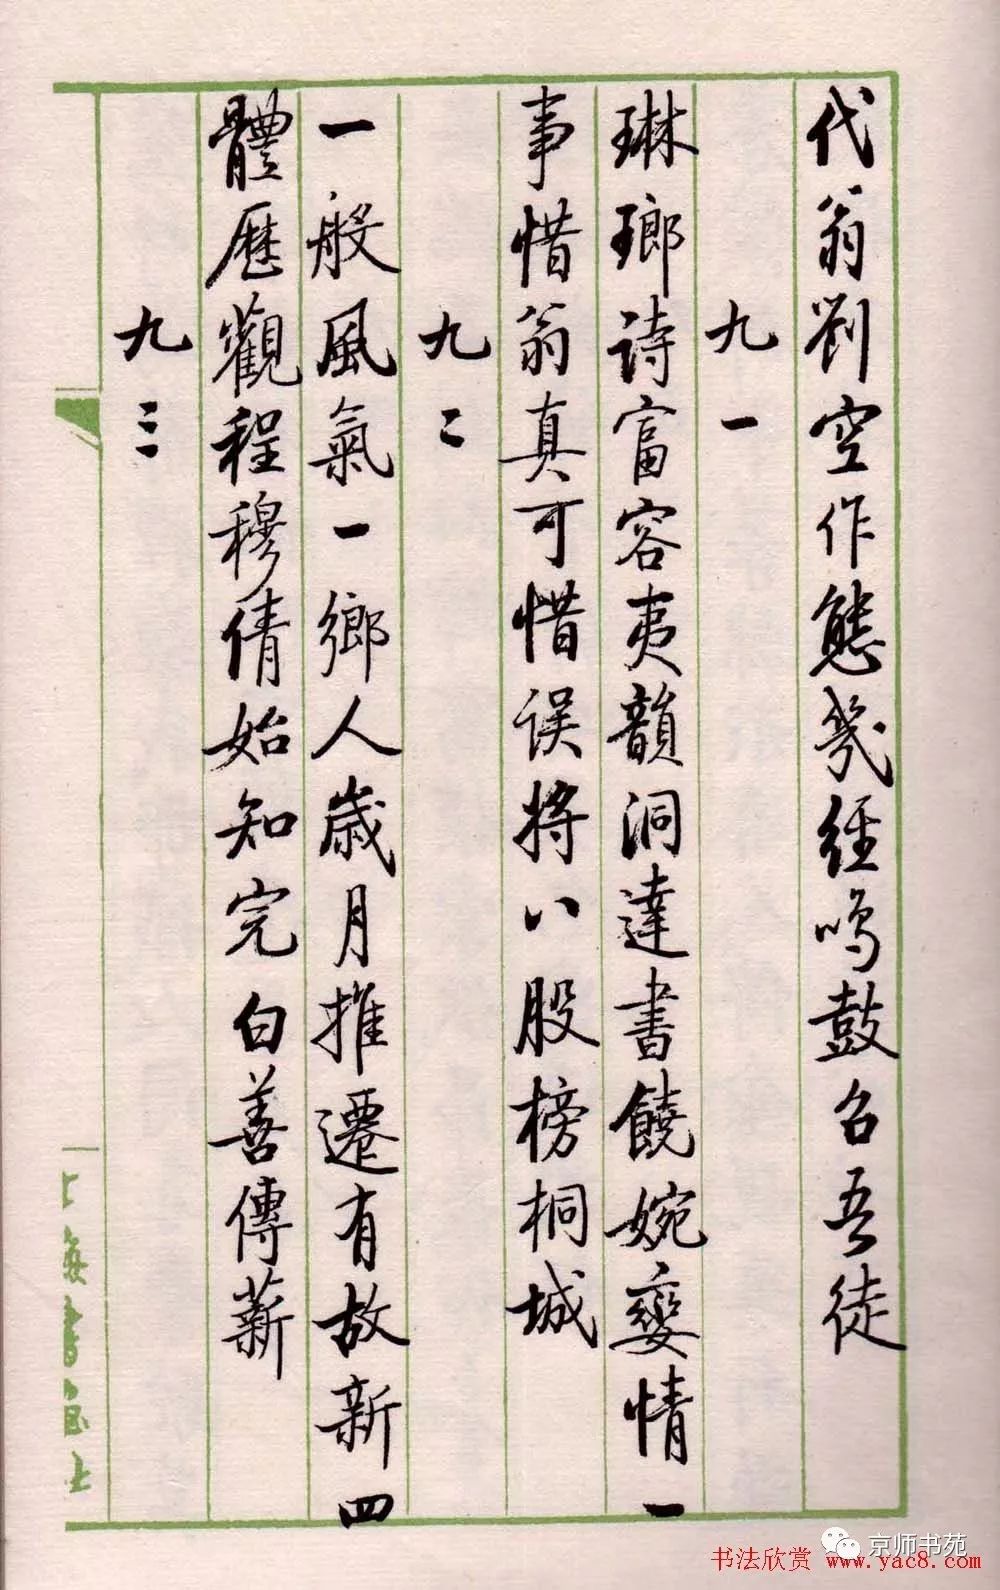 代翁劉空作態㡬經鳴鼓召吾徒
九一
琳瑯诗富容夷韻洞達書饒婉孌情一
事惜翁真可惜误将八股榜桐城
九二
一般風氣一鄉人歲月推遷有故新四
體歷觀程穆倩始知完白善傳薪
九三
上海書畫社
京师书苑
书法欣赏 www.yac8.com